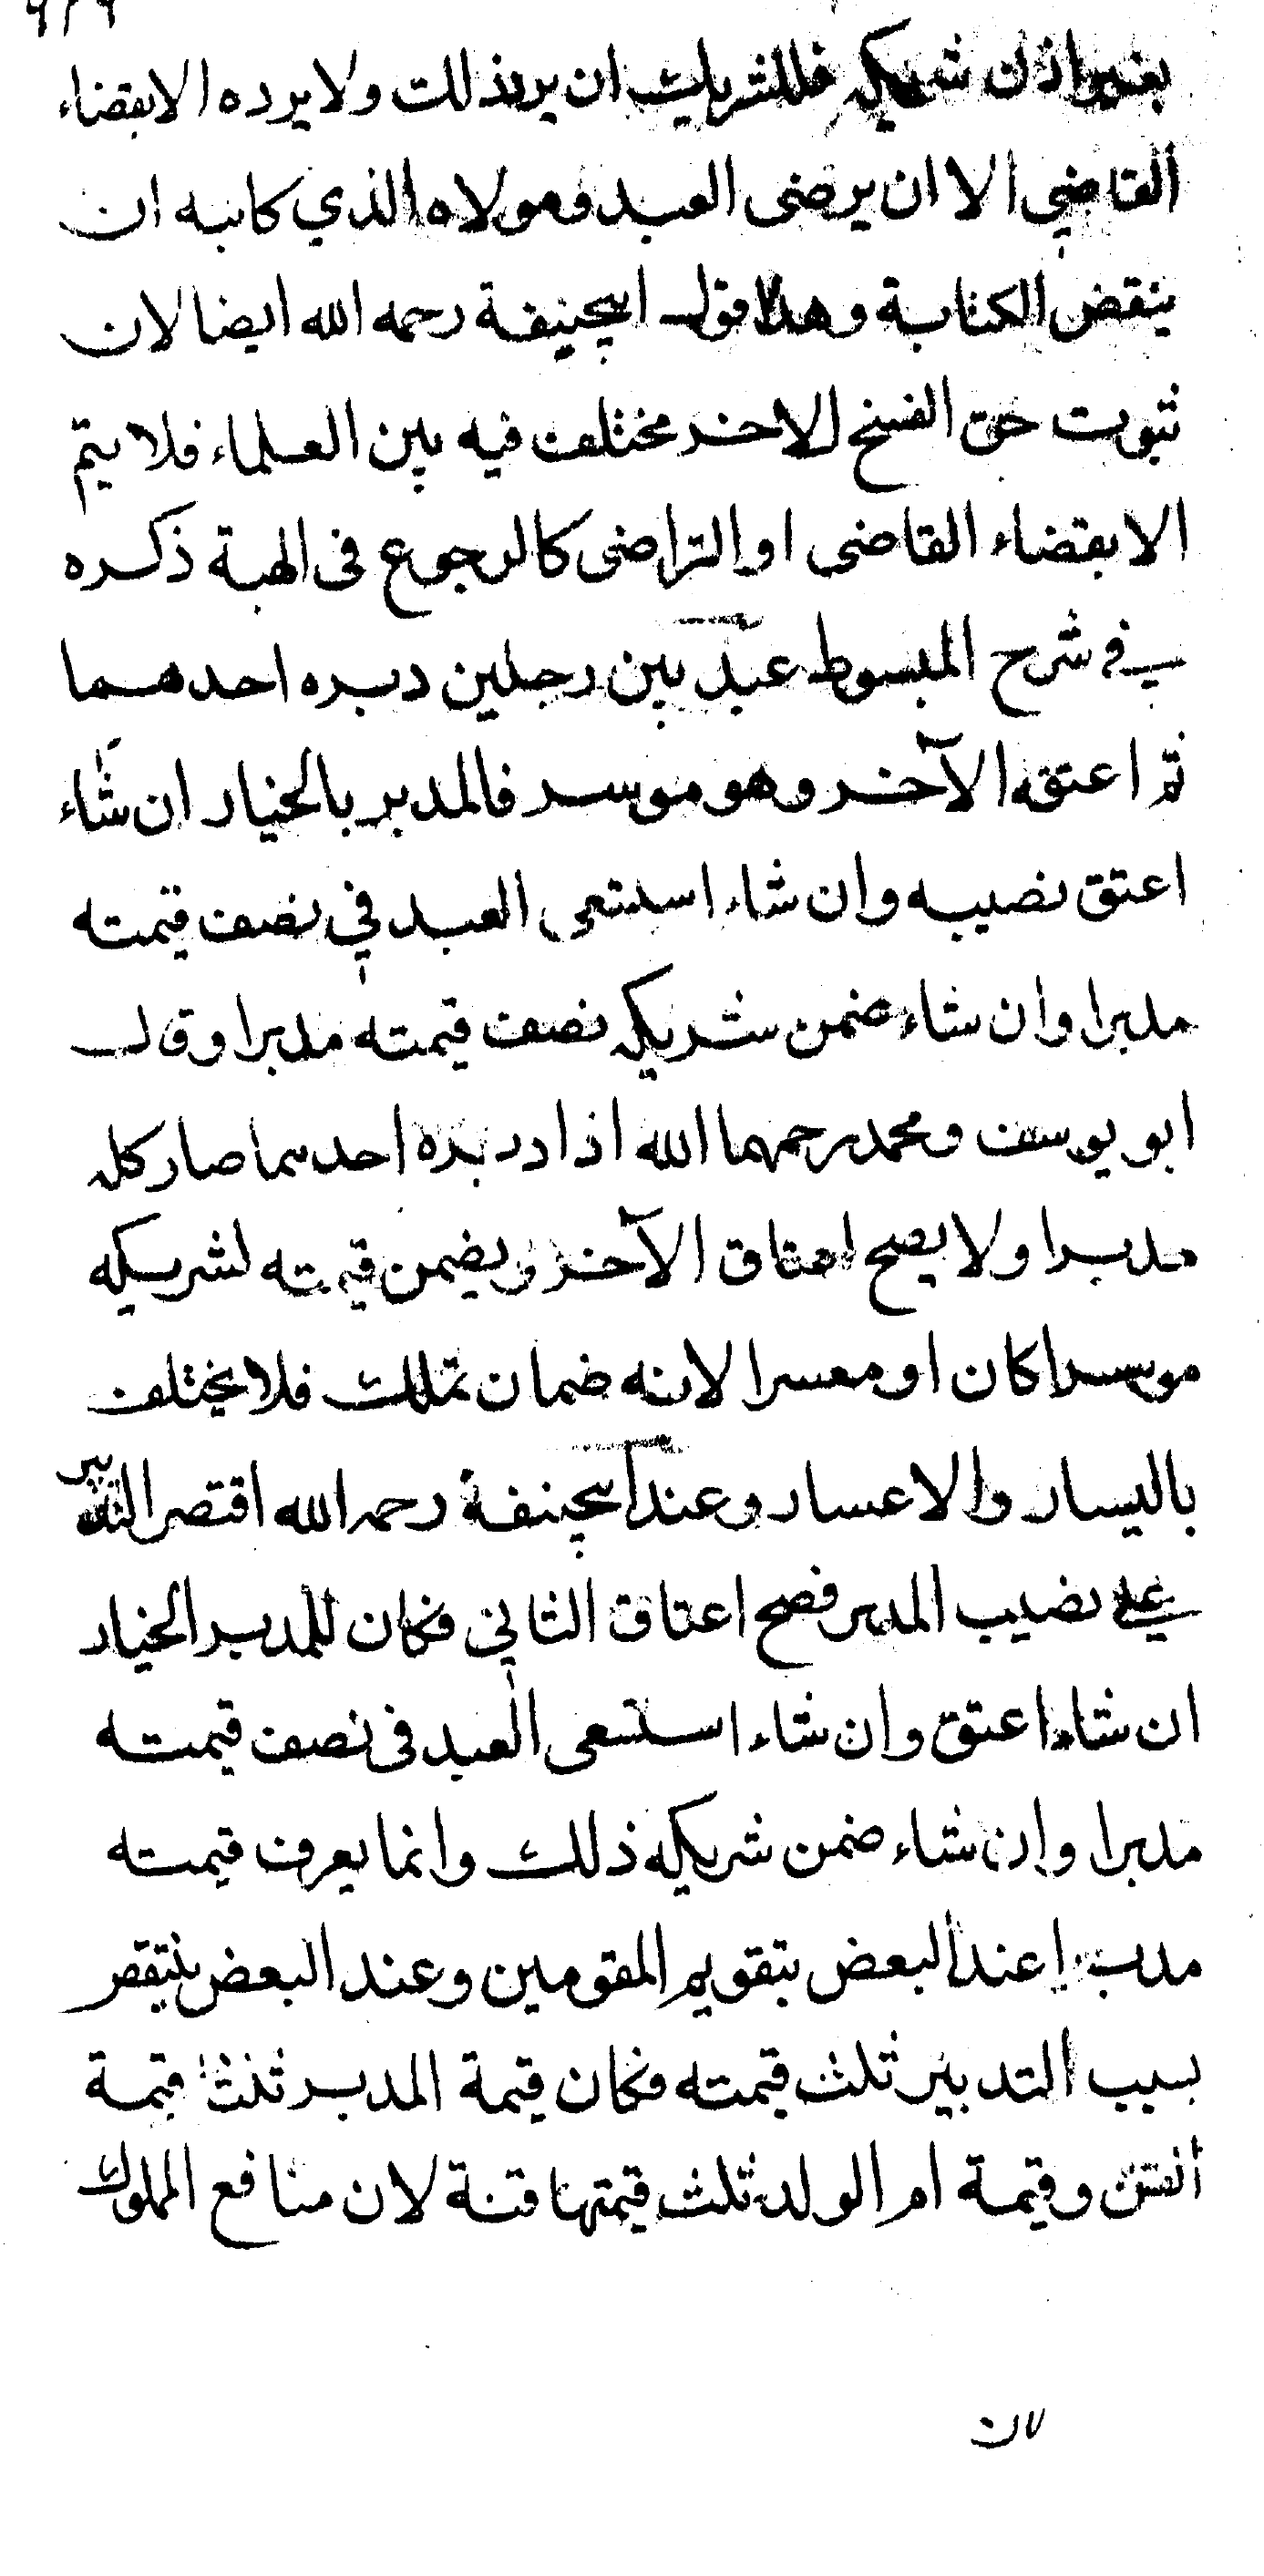 بغير اذن شريكه فللشريك ان يرد ذلك ولا يرده الا بقضاء
القاضي الا ان يرضى العبد ومولاه الذي كاتبه ان
ينقض الكتابة وهذا قول ابيحنيفة رحمه الله ايضا لان
ثبوت حق الفسخ للاخر مختلف فيه بين العلماء فلا يتم
الا بقضاء القاضى او التراضى كالرجوع فى الهبة ذكره
في شرح المبسوط عبد بين رجلين دبره احدهما
ثم اعتقه الآخر وهو موسر فالمدبر بالخيار ان شاء
اعتق نصيبه وان شاء استسعى العبد في نصف قيمته
مدبرا وان شاء ضمن شريكه نصف قيمته مدبرا وقال
ابو يوسف ومحمد رحمهما الله اذا دبره احدهما صار كله
مدبرا ولا يصح اعتاق الآخر ويضمن قيمته لشريكه
موسرا كان او معسرا لانه ضمان تملك فلا يختلف
باليسار والاعسار وعند ابيحنيفة رحمه الله اقتصر التدبير
على نصيب المدبر فصح اعتاق الثاني فكان للمدبر الخيار
ان شاء اعتق وان شاء استسعى العبد فى نصف قيمته
مدبرا وان شاء ضمن شريكه ذلك وانما يعرف قيمته
مدبرا عند البعض بتقويم المقومين وعند البعض ينتقص
بسبب التدبير ثلث قيمته فكان قيمة المدبر ثلثا قيمة
القن وقيمة ام الولد ثلث قيمتها قنة لان منافع المملوك
لان